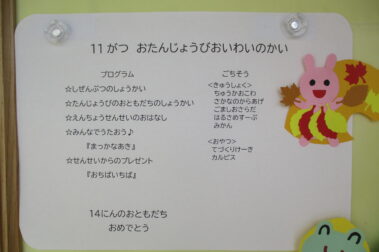 11がつ おたんじょうびおいわいのかい
プログラム
☆しぜんぶつのしょうかい
☆たんじょうびのおともだちのしょうかい
☆えんちょうせんせいのおはなし
☆みんなでうたおう♪
『まっかなあき』
☆せんせいからのプレゼント
『おちばいちば』
14にんのおともだち
おめでとう
ごちそう
<きゅうしょく>
ちゅうかおこわ
さかなのからあげ
ごましおさらだ
はるさめすーぷ
みかん
<おやつ>
てづくりけーき
カルピス